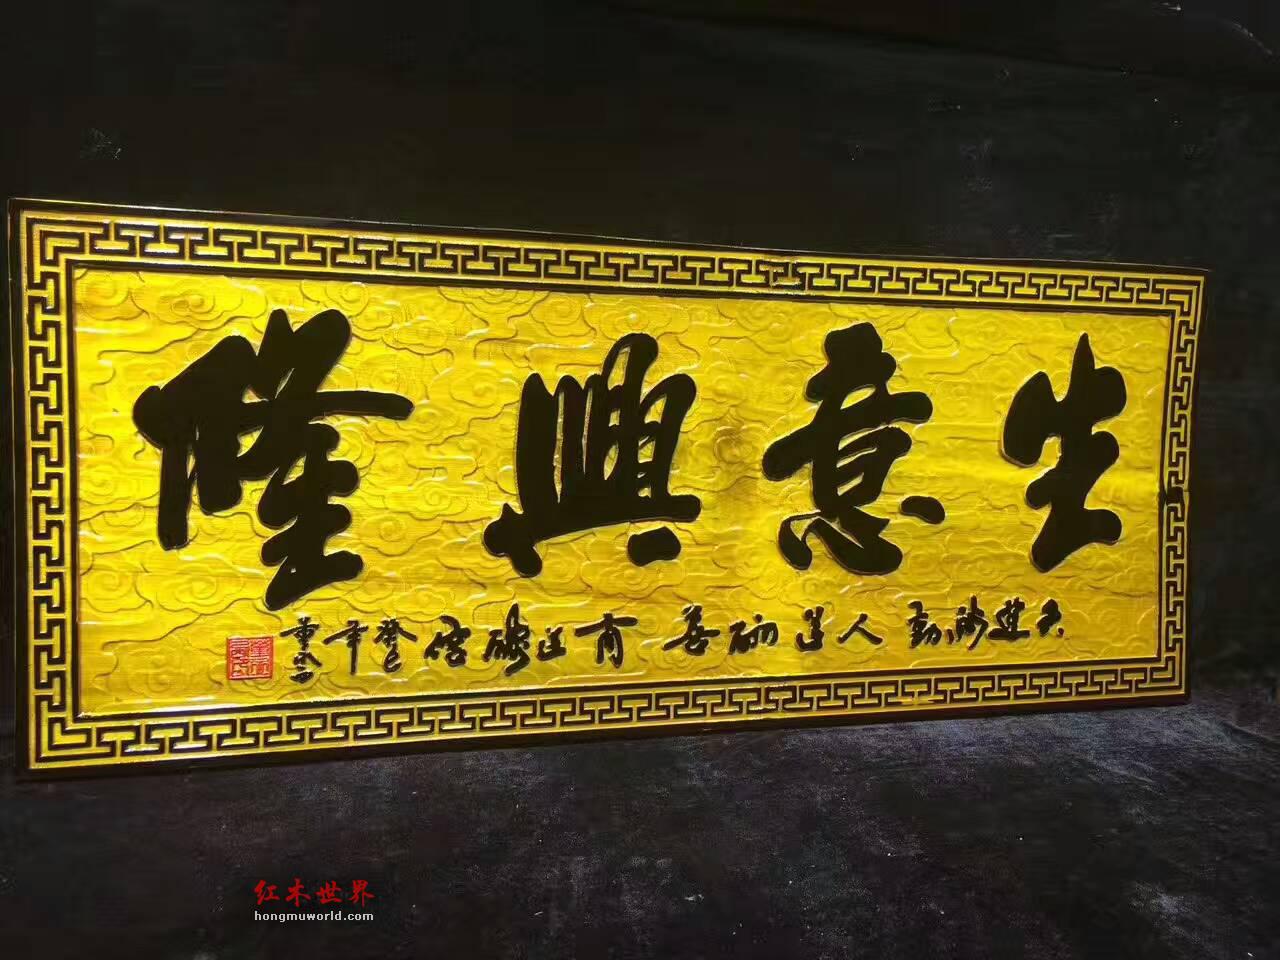 生意興隆
天道酬勤 人道酬善 商道酬信
癸巳年
红木世界
hongmuworld.com